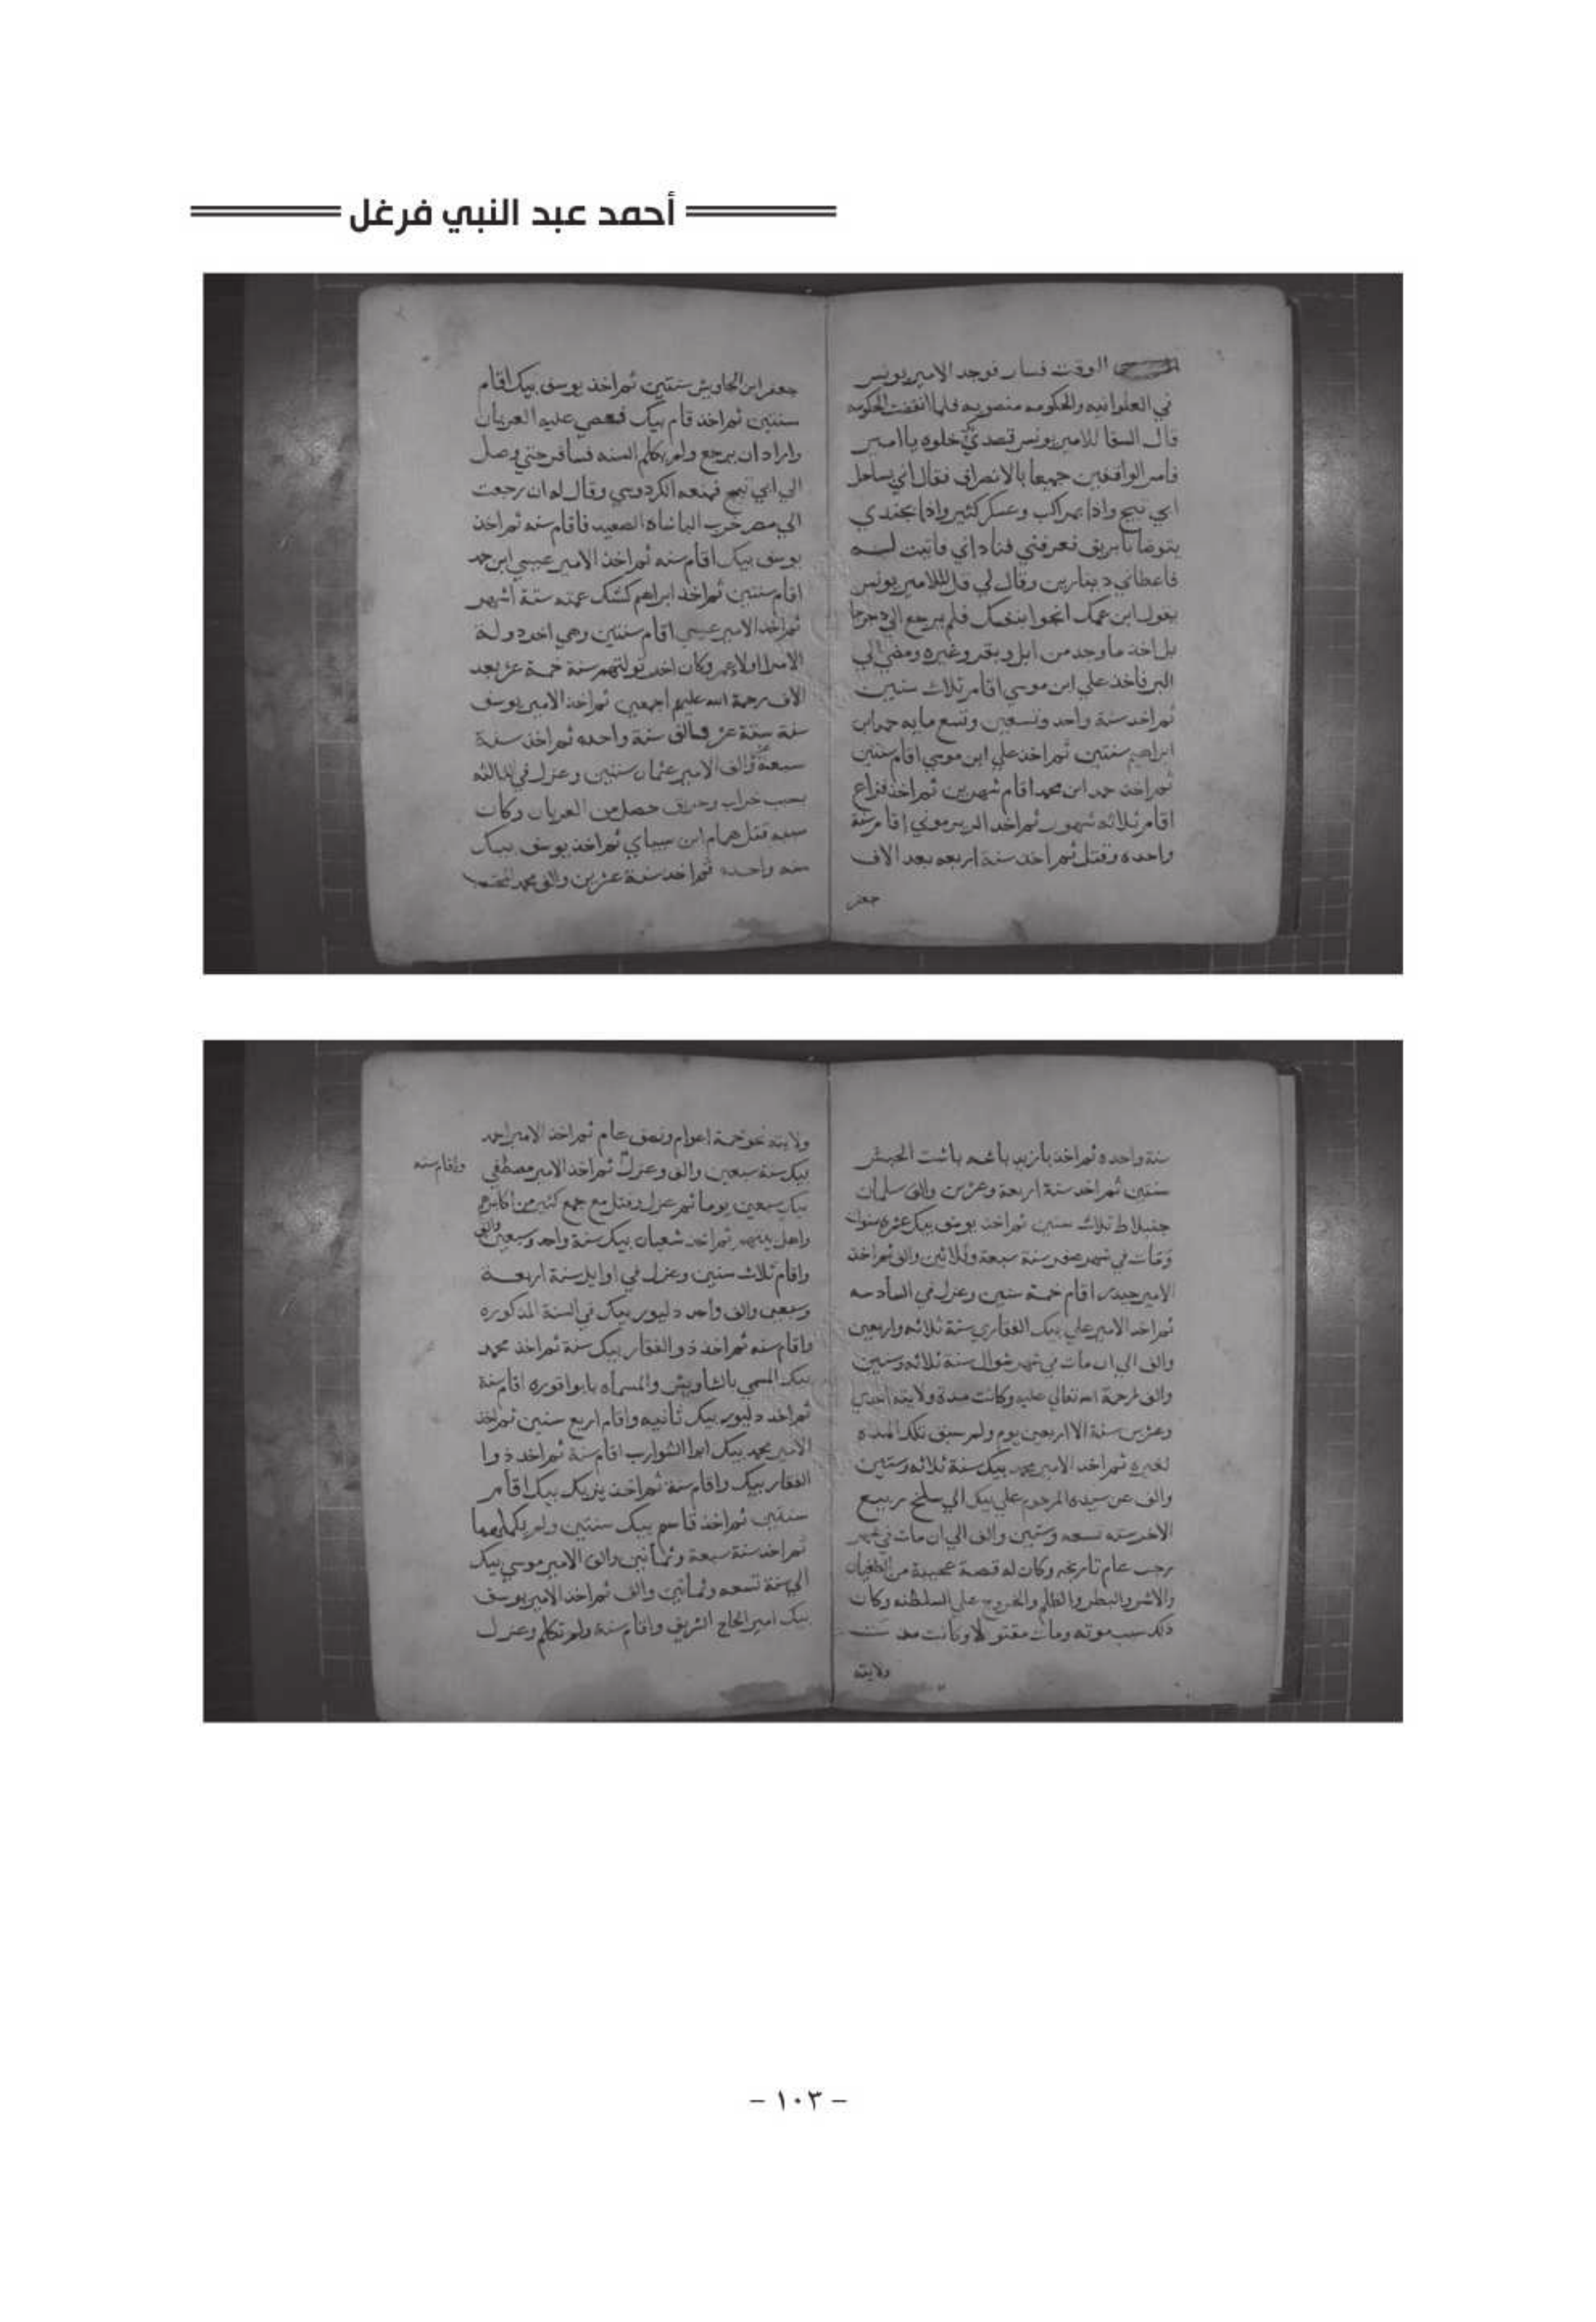 أحمد عبد النبي فرغل
الوقت فسار فوجد الامير يونس
في العلوانيه والحكومه منصوبه فلما انقضت الحكومه
قال السقا للامير يونس قصدي خلوه يا امير
فامر الواقفين جميعا بالانصراف فقال اني بساحل
ابي تيج واذا بمراكب وعسكر كثير واذا بجندي
يتوضا بابريق فعرفني فناداني فاتيت له
فاعطاني دينارين وقال لي قل للامير يونس
يقول ابن عمك انجوا بنفسك فلم يرجع الي دجرجا
بل اخذ ما وجد من ابل وبقر وغيره ومضي الي
البر فاخذ علي ابن موسي اقام ثلاث سنين
ثم اخذ سنة واحد وتسعين وتسع مايه حمد ابن
ابراهيم سنتين ثم اخذ علي ابن موسي اقام سنتين
ثم اخذ حمد ابن محمد اقام شهرين ثم اخذ فزاع
اقام ثلاثه شهور ثم اخذ الديرموني اقام سنة
واحده وقتل ثم اخذ سنة اربعه بعد الاف
جعفر
جعفر ابن الجاويش سنتين ثم اخذ يوسف بيك اقام
سنتين ثم اخذ قام بيك فعصي عليه العربان
واراد ان يرجع ولم يكلم السنه فسافر حتي وصل
الي ابي تيج فمنعه الكردوسي وقال له ان رجعت
الي مصر خرب الباشاه الصعيد فاقام سنه ثم اخذ
يوسف بيك اقام سنه ثم اخذ الامير عيسي ابن حمد
اقام سنتين ثم اخذ ابراهيم كشك عمته ستة اشهر
ثم اخذ الامير عيسي اقام سنتين وهي اخر دولة
الامرا اولاد عمر وكان اخر توليتهم سنة خمسة عشر بعد
الاف رحمة الله عليهم اجمعين ثم اخذ الامير يوسف
سنة ستة عشر والف سنة واحده ثم اخذ سنة
سبعة عشر والف الامير عثمان سنتين وعزل في الثالثه
بسبب خراب وحريق حصل من العربان وكان
سببه قتل همام ابن سيباي ثم اخذ يوسف بيك
سنه واحده ثم اخذ سنة عشرين والف محمد
سنة واحده ثم اخذ بازيد باشه باشت الحبش
سنتين ثم اخذ سنة اربعة وعشرين والف سلمان
جنبلاط ثلاث سنين ثم اخذ يوسف بيك عشره سنوات
ومات في شهر صفر سنة سبعة وثلاثين والف ثم اخذ
الامير حيدر اقام خمسة سنين وعزل في السادسه
ثم اخذ الامير علي بيك الفقاري سنة ثلاثه واربعين
والف الي ان مات في شهر شوال سنة ثلاثه وستين
والف فرحمة الله تعالي عليه وكانت مدة ولايته احدي
وعشرين سنة الا اربعين يوم ولم سبق تلك المده
لغيره ثم اخذ الامير محمد بيك سنة ثلاثه وستين
والف عن سيده المرحوم علي بيك الي سلخ ربيع
الاخر سنه تسعه وستين والف الي ان مات في شهر
رجب عام تاريخه وكان له قصة عجيبة من الطغيان
والاشر والبطر والظلم والخروج علي السلطنه وكان
ذلك سبب موته ومات مقتولا وكانت مدت
ولايته
ولايته نحو خمسة اعوام ونصف عام ثم اخذ الامير احمد
بيك سنة سبعين والف وعزل ثم اخذ الامير مصطفي
واقام سنه
بيك سبعين يوما ثم عزل وقتل مع جمع كثير من اكابرهم
واهل بيتهم ثم اخذ شعبان بيك سنة واحد وسبعين والف
واقام ثلاث سنين وعزل في اوايل سنة اربعة
وسبعين والف واخذ دليور بيك في السنة المذكوره
واقام سنه ثم اخذ ذو الفقار بيك سنة ثم اخذ محمد
بيك المسمي بالشاويش والمسماه بابو اقوره اقام سنة
ثم اخذ دليور بيك ثانيه واقام اربع سنين ثم اخذ
الامير محمد بيك ابوا الشوارب اقام سنة ثم اخذ ذوا
الفقار بيك واقام سنة ثم اخذ يزبك بيك اقام
سنتين ثم اخذ قاسم بيك سنتين ولم يكملهما
ثم اخذ سنة سبعة وثمانين والف الامير موسي بيك
الي سنة تسعه وثمانين والف ثم اخذ الامير يوسف
بيك امير الحاج الشريف واقام سنة ولم تكلم وعزل
- ١٠٣ -